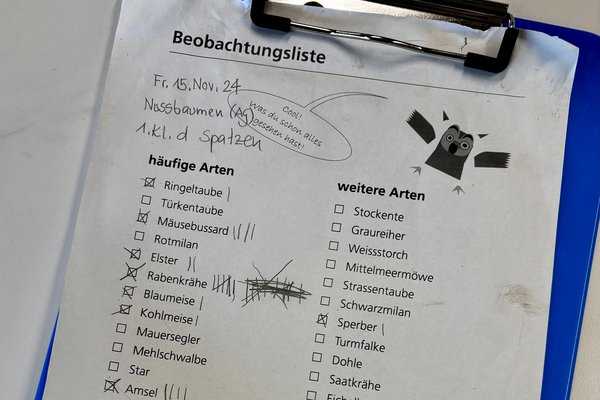 Beobachtungsliste
Fr. 15. Nov. 24
Nussbaumen (Ag)
1. Kl. d Spatzen
Cool!
Was du schon alles
gesehen hast!
häufige Arten
Ringeltaube
Türkentaube
Mäusebussard
Rotmilan
Elster
Rabenkrähe
Blaumeise
Kohlmeise
Mauersegler
Mehlschwalbe
Star
Amsel
weitere Arten
Stockente
Graureiher
Weissstorch
Mittelmeermöwe
Strassentaube
Schwarzmilan
Sperber
Turmfalke
Dohle
Saatkrähe